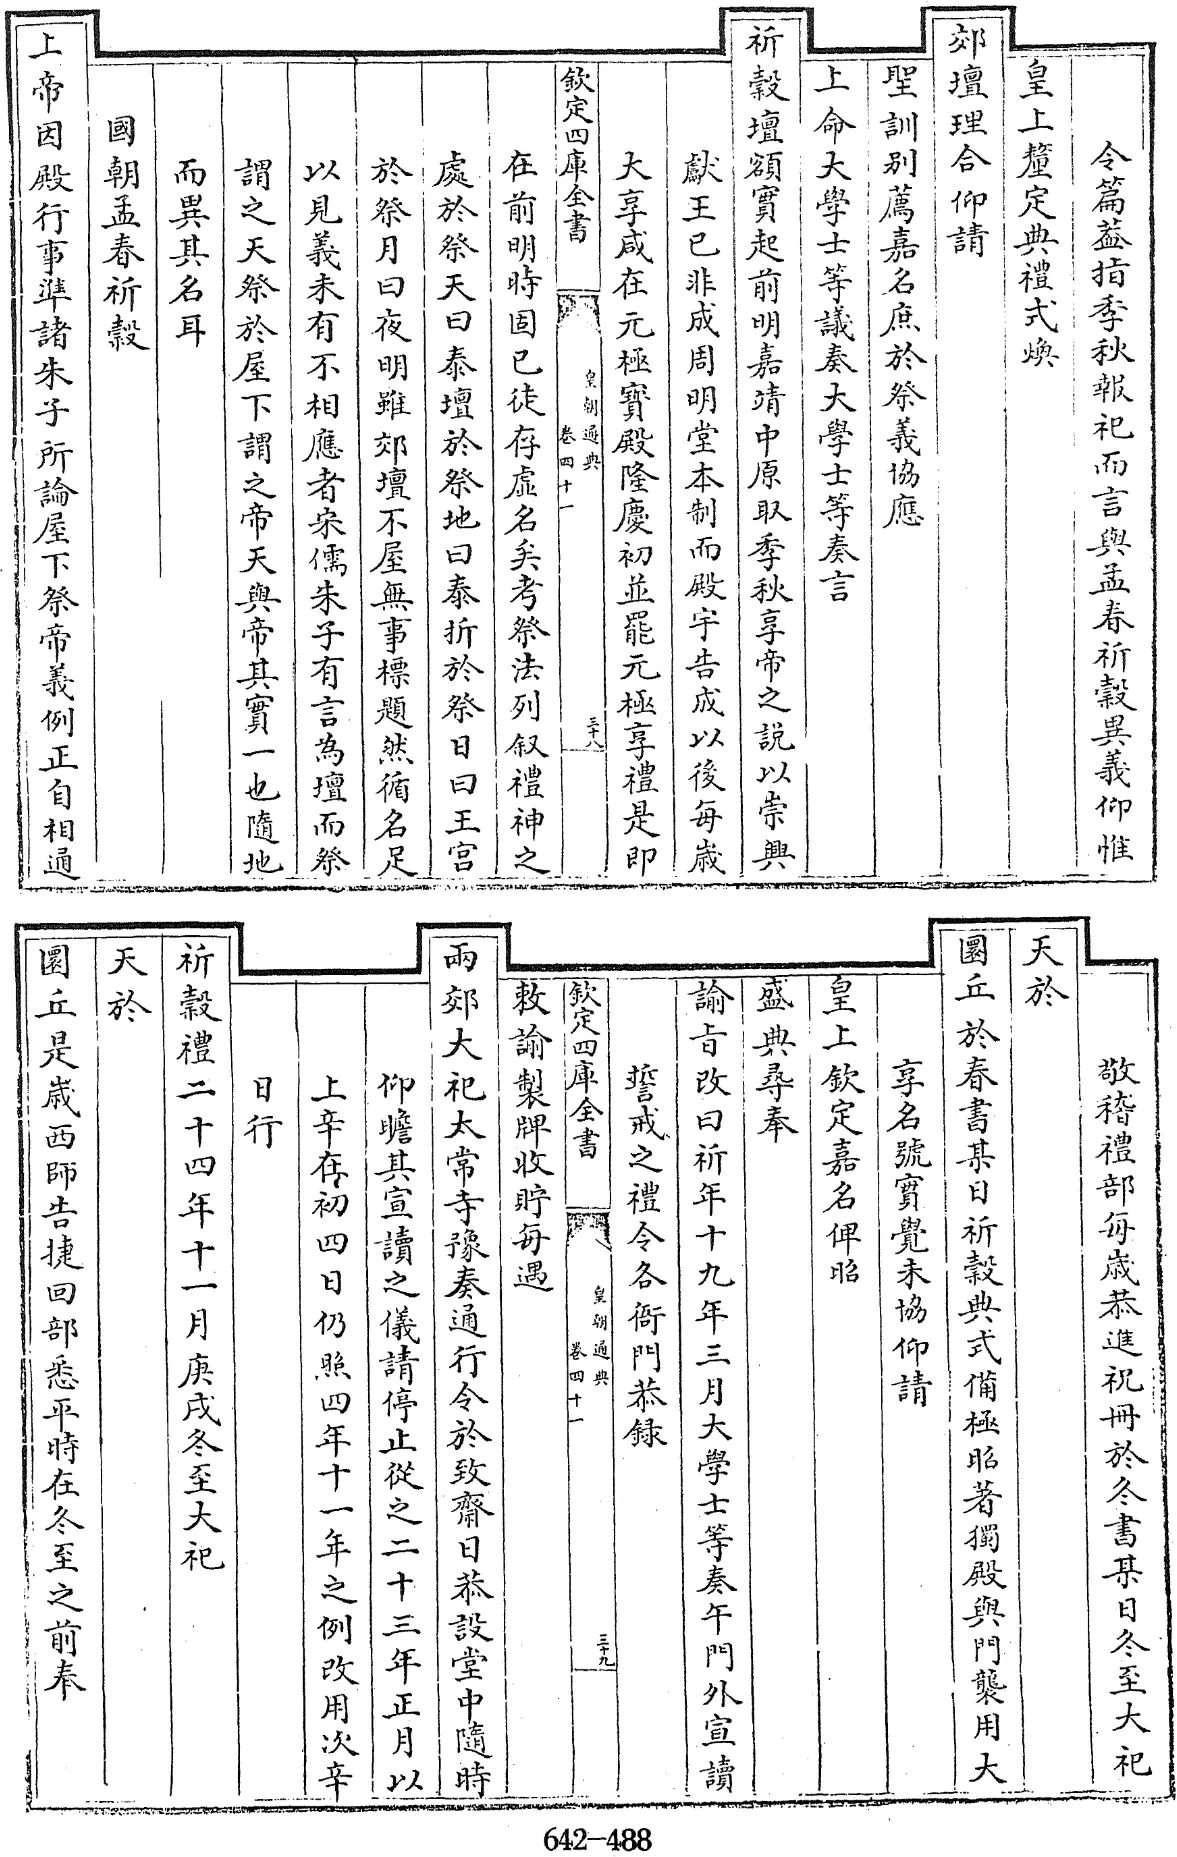 令篇葢指季秋報祀而言與孟春祈穀異義仰惟
皇上釐定典禮式煥
郊壇理合仰請
聖訓别薦嘉名庶於祭義協應
上命大學士等議奏大學士等奏言
祈穀壇額實起前明嘉靖中原取季秋享帝之説以崇興
獻王已非成周明堂本制而殿宇告成以後每歳
大享咸在元極寳殿隆慶初並罷元極享禮是即
欽定四庫全書
皇朝通典
卷四十一
三十八
在前明時固已徒存虛名矣考祭法列叙禮神之
處於祭天曰泰壇於祭地曰泰折於祭日曰王宫
於祭月曰夜明雖郊壇不屋無事標題然循名足
以見義未有不相應者宋儒朱子有言為壇而祭
謂之天祭於屋下謂之帝天與帝其實一也隨地
而異其名耳
國朝孟春祈穀
上帝因殿行事準諸朱子所論屋下祭帝義例正自相通
敬稽禮部每歳恭進祝冊於冬書某日冬至大祀
天於
圜丘於春書某日祈穀典式備極昭著獨殿與門襲用大
享名號實覺未協仰請
皇上欽定嘉名俾昭
盛典尋奉
諭㫖改曰祈年十九年三月大學士等奏午門外宣讀
誓戒之禮令各衙門恭録
欽定四庫全書
皇朝通典
卷四十一
三十九
敕諭製牌收貯每遇
兩郊大祀太常寺豫奏通行令於致齋日恭設堂中隨時
仰瞻其宣讀之儀請停止從之二十三年正月以
上辛在初四日仍照四年十一年之例改用次辛
日行
祈穀禮二十四年十一月庚戌冬至大祀
天於
圜丘是歳西師告捷回部悉平時在冬至之前奉
642-488